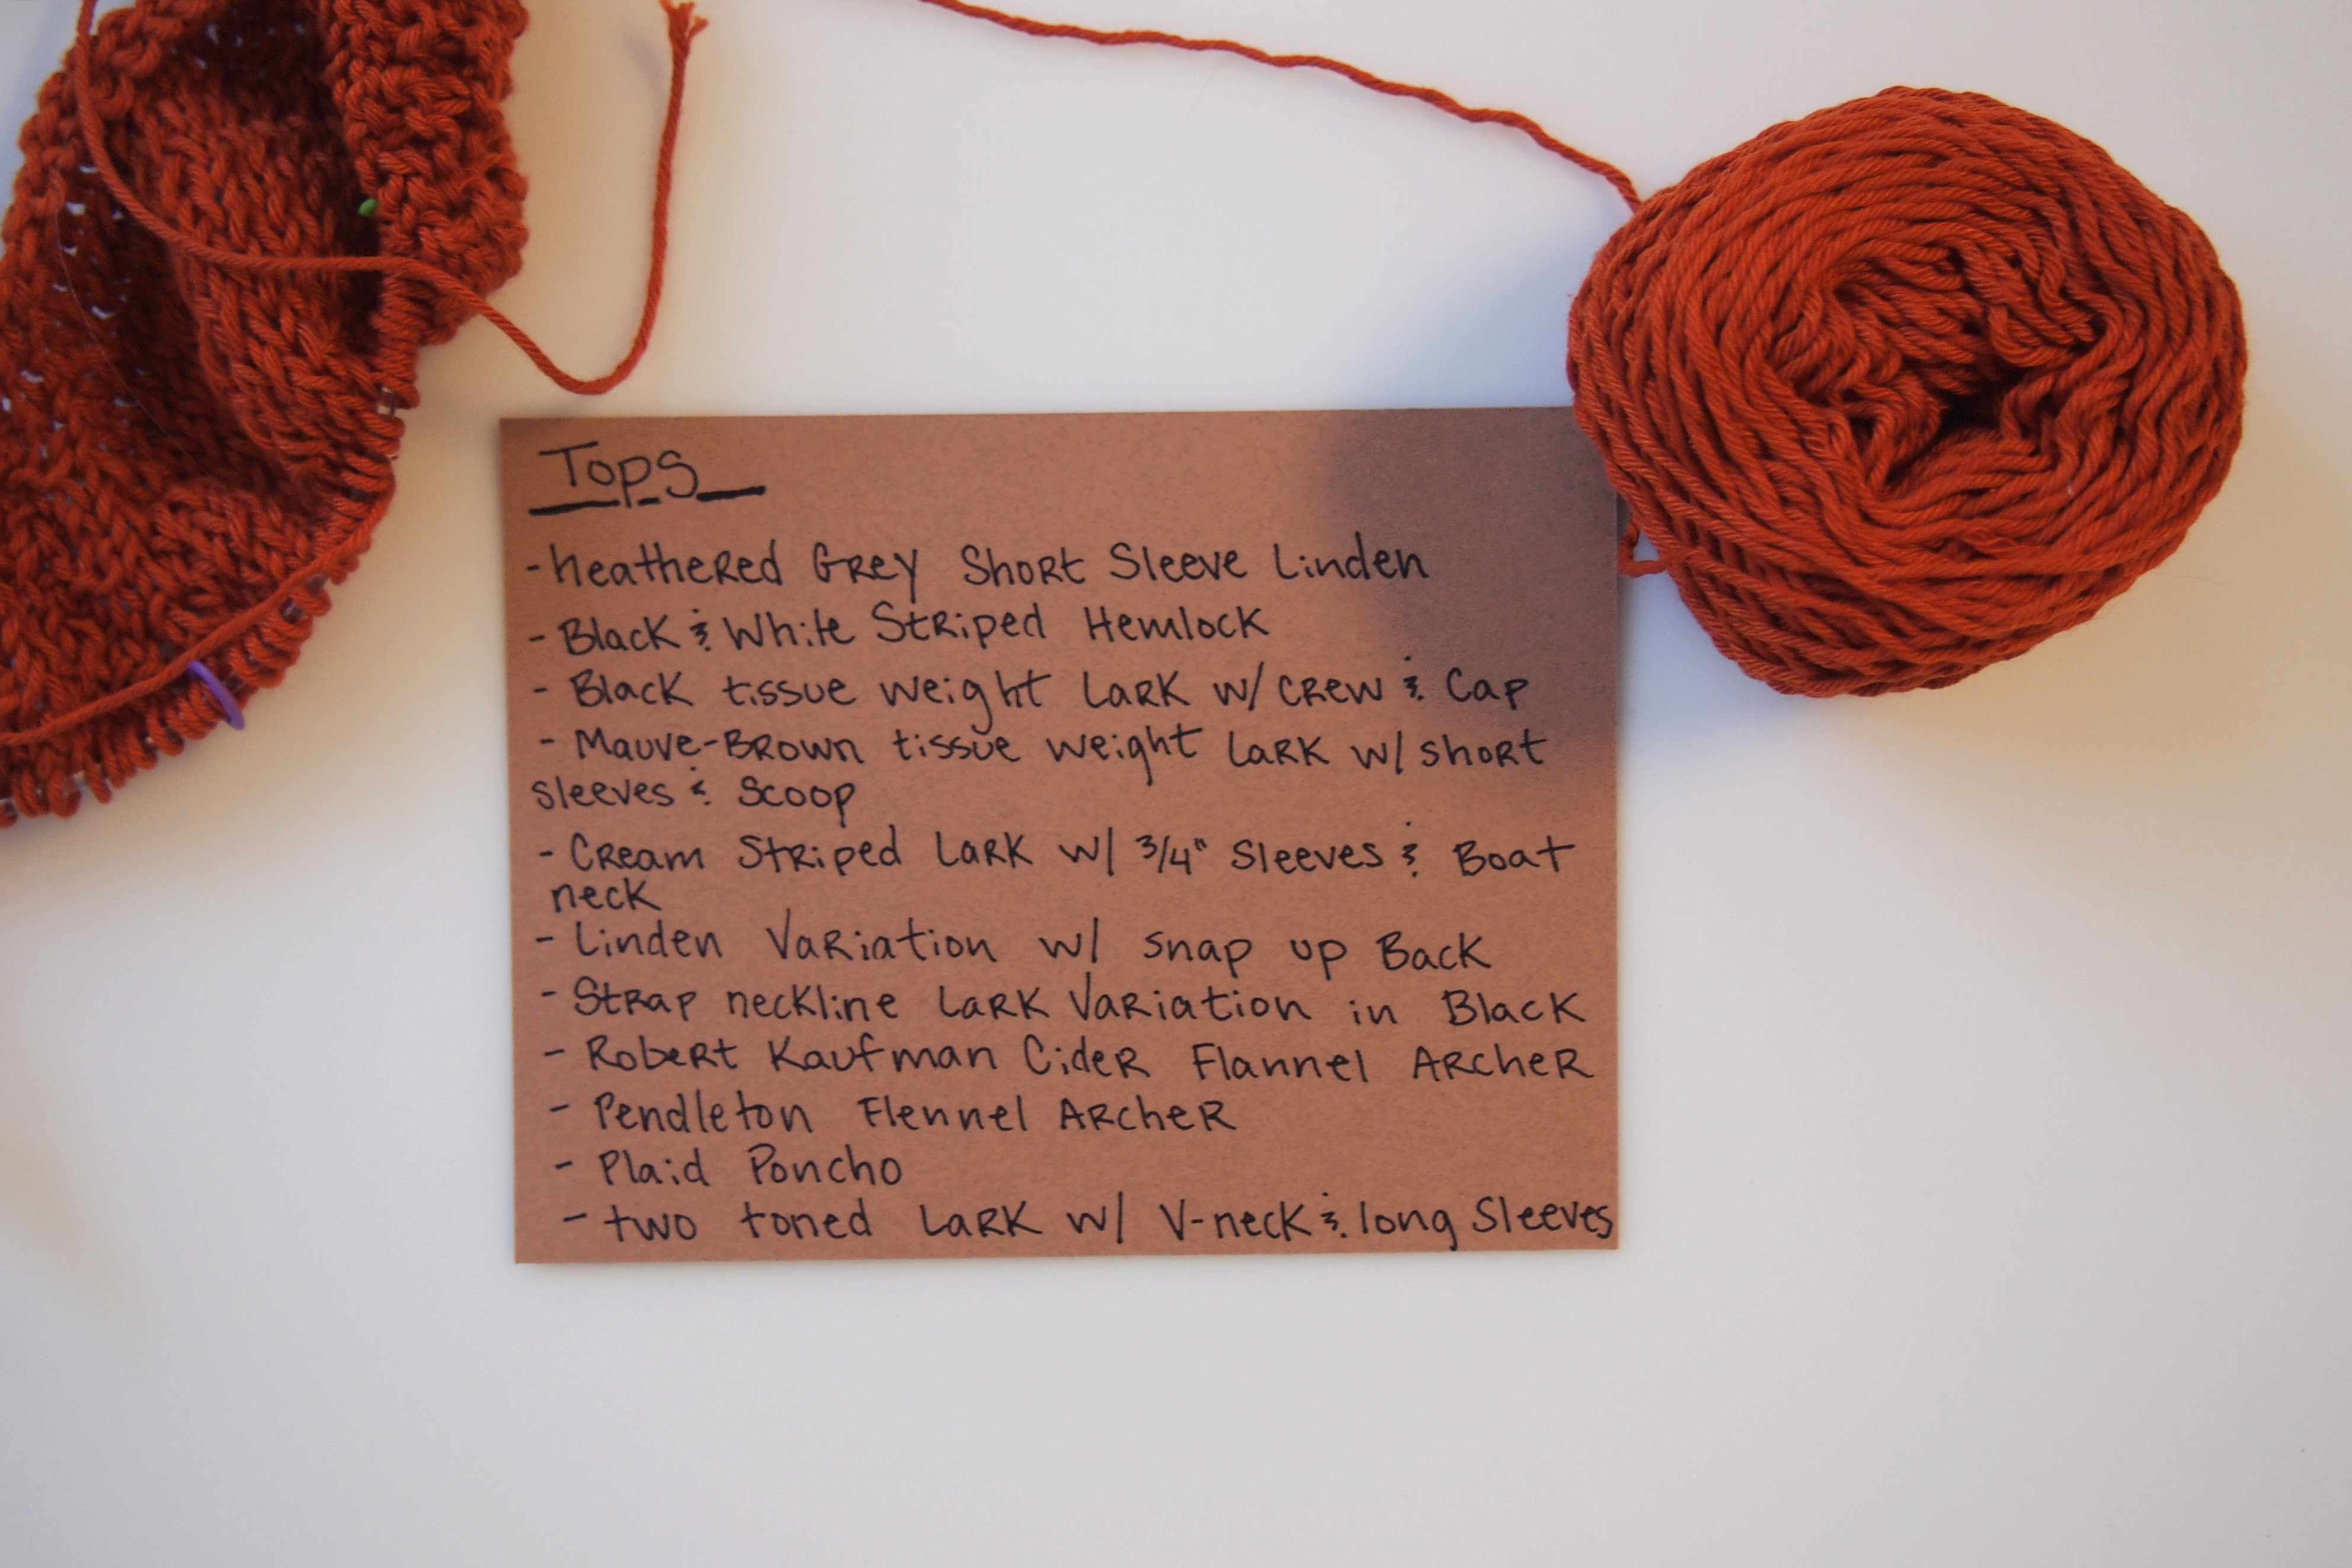 Tops
- heathered Grey Short Sleeve Linden
- Black & White Striped Hemlock
- Black tissue weight Lark w/ crew & Cap
- Mauve-Brown tissue weight Lark w/ short
sleeves & Scoop
- Cream Striped Lark w/ 3/4" Sleeves & Boat
neck
- Linden Variation w/ snap up Back
- Strap neckline Lark Variation in Black
- Robert Kaufman Cider Flannel Archer
- Pendleton Flennel Archer
- Plaid Poncho
- two toned Lark w/ V-neck & long Sleeves